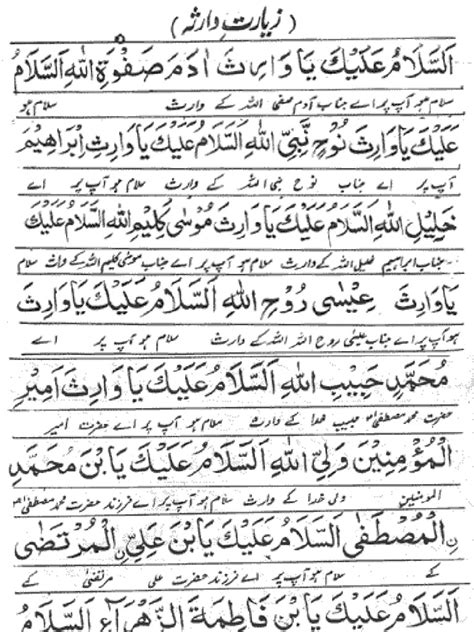 ( زیارت وارثہ )
اَلسَّلَامُ عَلَيْكَ يَا وَارِثَ اٰدَمَ صَفْوَةِ اللهِ اَلسَّلَامُ
سلام ہو آپ پر اے جناب آدم صفی اللہ کے وارث سلام ہو
عَلَيْكَ يَا وَارِثَ نُوْحٍ نَّبِيِّ اللهِ اَلسَّلَامُ عَلَيْكَ يَا وَارِثَ اِبْرَاهِيْمَ
آپ پر اے جناب نوح نبی اللہ کے وارث سلام ہو آپ پر اے
خَلِيْلِ اللهِ اَلسَّلَامُ عَلَيْكَ يَا وَارِثَ مُوْسٰى كَلِيْمِ اللهِ اَلسَّلَامُ عَلَيْكَ
جناب ابراہیم خلیل اللہ کے وارث سلام ہو آپ پر اے جناب موسیٰ کلیم اللہ کے وارث سلام
يَا وَارِثَ عِيْسٰى رُوْحِ اللهِ اَلسَّلَامُ عَلَيْكَ يَا وَارِثَ
ہو آپ پر اے جناب عیسیٰ روح اللہ کے وارث سلام ہو آپ پر اے
مُحَمَّدٍ حَبِيْبِ اللهِ اَلسَّلَامُ عَلَيْكَ يَا وَارِثَ اَمِيْرِ
حضرت محمد مصطفیٰ حبیب خدا کے وارث سلام ہو آپ پر اے حضرت امیر
الْمُؤْمِنِيْنَ وَلِيِّ اللهِ اَلسَّلَامُ عَلَيْكَ يَا بْنَ مُحَمَّدٍ
المومنین ولی خدا کے وارث سلام ہو آپ پر اے فرزند حضرت محمد مصطفیٰ
نِ الْمُصْطَفٰى اَلسَّلَامُ عَلَيْكَ يَا بْنَ عَلِيِّ نِ الْمُرْتَضٰى
کے سلام ہو آپ پر اے فرزند حضرت علی مرتضیٰ کے
اَلسَّلَامُ عَلَيْكَ يَا بْنَ فَاطِمَةَ الزَّهْرَاءِ اَلسَّلَامُ